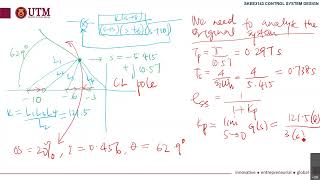 UTM
SKEE3143 CONTROL SYSTEM DESIGN
K(s+8)
(s+3)(s+6)(s+10)
62.9°
L1
s = -5.415
+ j10.57
CL pole
-10 -8 -6 -3
K = L1 L3 L4
L2
= 121.5
OS = 20%, ζ = 0.456, θ = 62.9°
We need to analyze the
original system
Tp = π / 10.57 = 0.297s
Ts = 4 / ζωn = 4 / 5.415 = 0.738s
ess = 1 / 1+Kp
Kp = lim s→0 G(s) = 121.5(8) / 3(6)
innovative • entrepreneurial • global